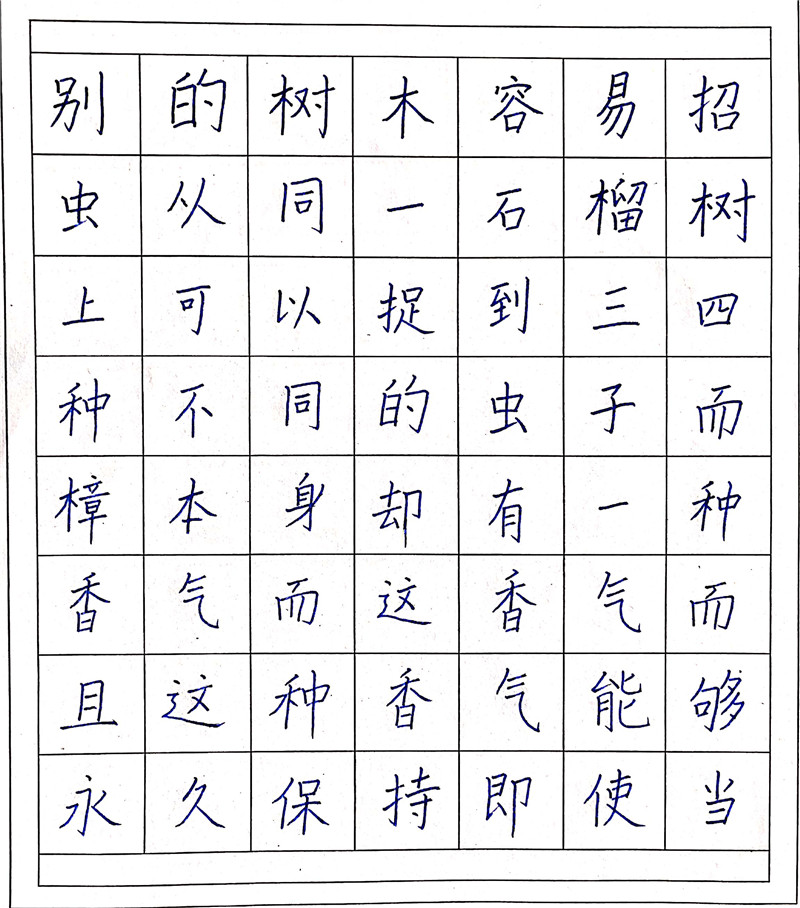 别的树木容易招
虫从同一石榴树
上可以捉到三四
种不同的虫子而
樟本身却有一种
香气而这香气而
且这种香气能够
永久保持即使当